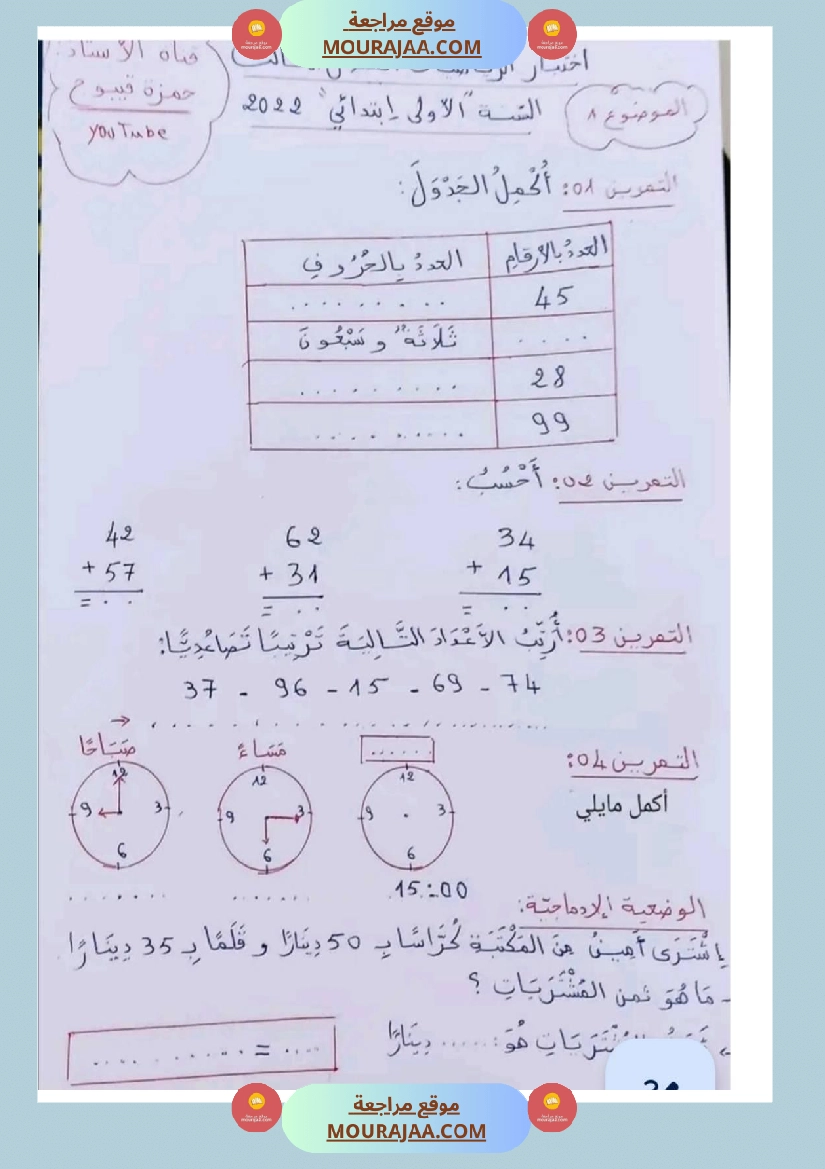 موقع مراجعة
MOURAJAA.COM
قناة الأستاذ:
حمزة قيبوح
YouTube
السّنة "الأولى إبتدائي" 2022
الموضوع 8
التمرين 01: أُكْمِلُ الجَدْوَلَ:
العددُ بالأرقامِ العددُ بالحُرُوفِ
45 ..........
.... ثَلَاثَةٌ و سَبْعُونَ
28 ..........
99 ..........
التمرين 02: أَحْسُبُ:
34 62 42
+ 15 + 31 + 57
= . . = . . = . .
التمرين 03: أُرَتِّبُ الأَعْدَادَ التَّالِيَةَ تَرْتِيبًا تَصَاعُدِيًّا:
37 - 96 - 15 - 69 - 74
التمرين 04:
أكمل مايلي
...... مَسَاءً صَبَاحًا
12 3 6 9
12 3 6 9
12 3 6 9
15:00 ....... .......
الوضعية الإدماجيّة:
إِشْتَرَى أَمِينُ مِنَ المَكْتَبَةِ كُرَّاسًا بِـ 50 دِينَارًا و قَلَمًا بِـ 35 دِينَارًا.
- مَا هُوَ ثمن المُشْتَرَيَاتِ ؟
المُشْتَرَيَاتِ هُوَ: ...... دِينَارًا
.... = ..........
موقع مراجعة
MOURAJAA.COM